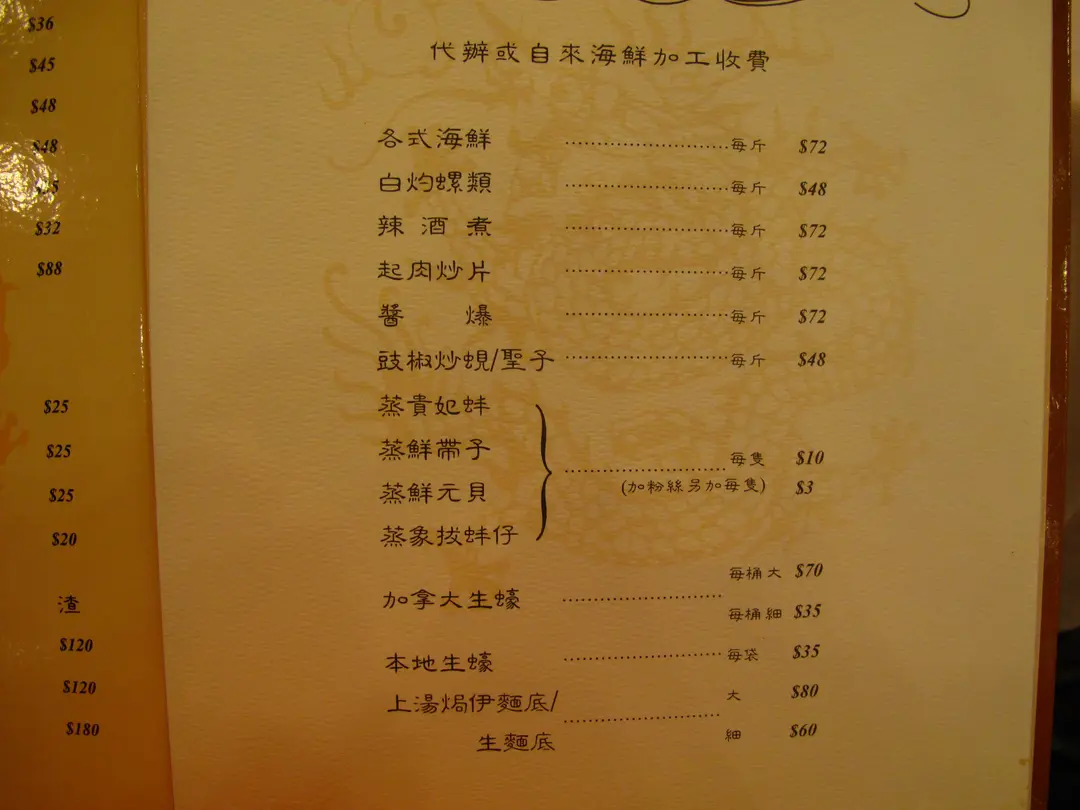 $36
$45
$48
$48
$32
$88
$25
$25
$25
$20
渣
$120
$120
$180
代辦或自來海鮮加工收費
各式海鮮 每斤 $72
白灼螺類 每斤 $48
辣酒煮 每斤 $72
起肉炒片 每斤 $72
醬爆 每斤 $72
豉椒炒蜆/聖子 每斤 $48
蒸貴妃蚌
蒸鮮帶子
蒸鮮元貝
蒸象拔蚌仔
每隻 $10
(加粉絲另加每隻) $3
加拿大生蠔 每桶大 $70
每桶細 $35
本地生蠔 每袋 $35
上湯焗伊麵底/ 大 $80
生麵底 細 $60